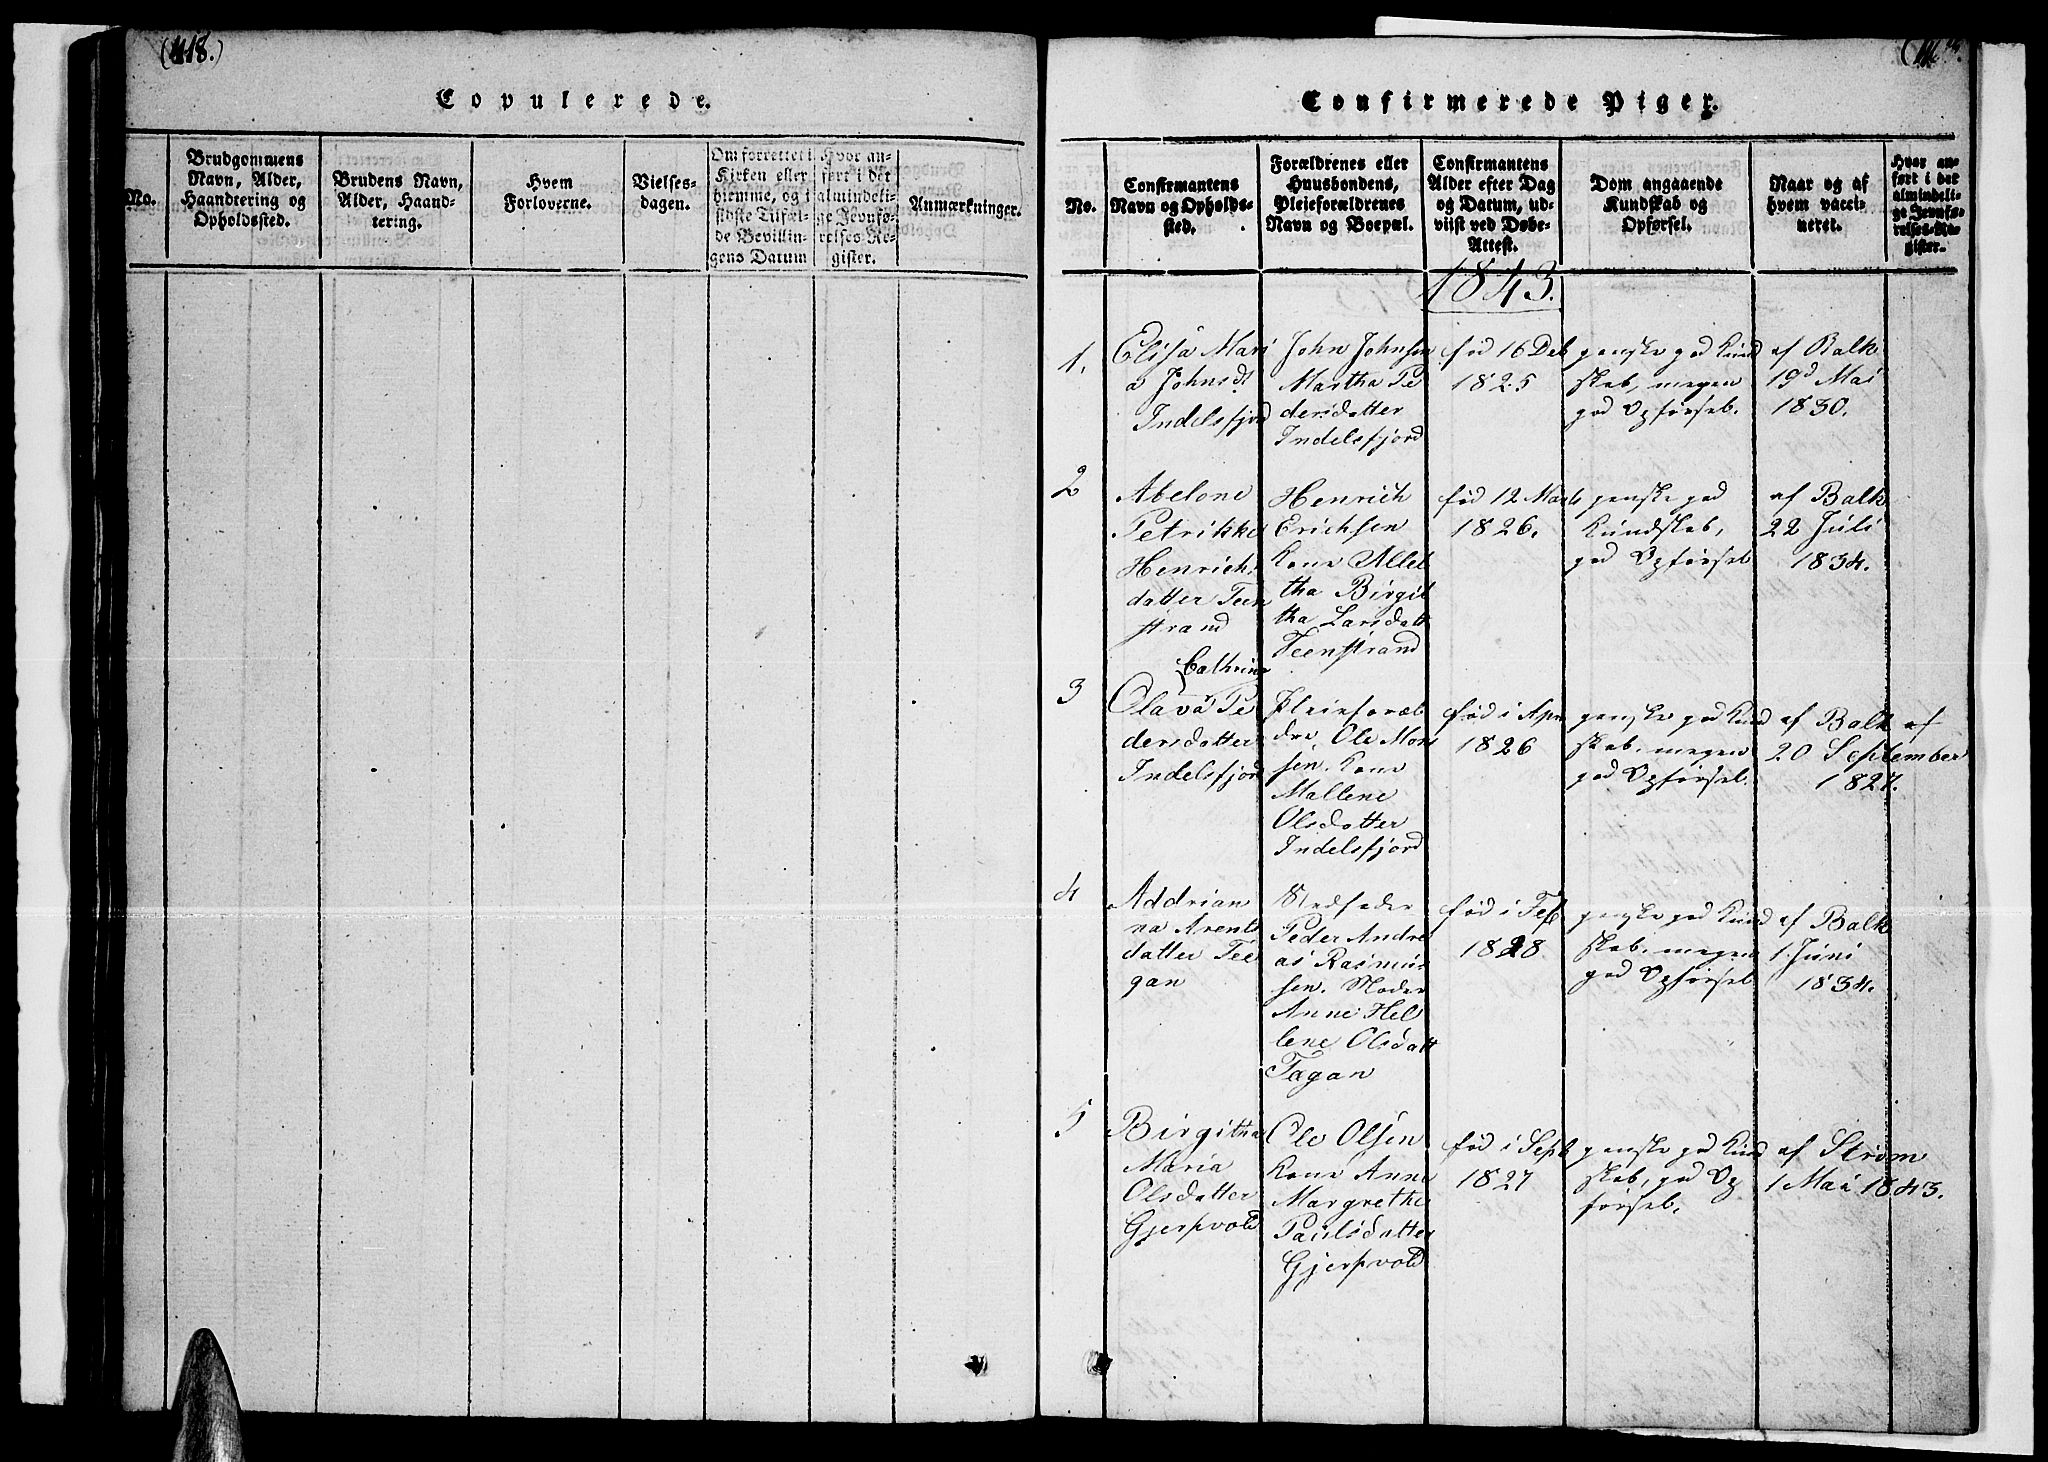 (418.)
Copulerede.
No.
Brudgommens
Navn, Alder,
Haandtering og
Opholdssted.
Brudens Navn,
Alder, Haand-
tering.
Hvem
Forloverne.
Vielses-
dagen.
Om forrettet i
Kirken eller
hjemme, og i
sidste Tilfæl-
de Bevillin-
gens Datum
Hvor an-
ført i det
almindeli-
ge Jevnfø-
relses-Re-
gister.
Anmærkninger.
Confirmerede Piger.
No.
Confirmantens
Navn og Opholds-
sted.
Forældrenes eller
Huusbondens,
Plejeforældrenes
Navn og Boepæl.
Confirmantens
Alder efter Dag
og Datum, ud-
viist ved Døbe-
Attest.
Dom angaaende
Kundskab og
Opførsel.
Naar og af
hvem vacci-
neret.
Hvor an-
ført i det
almindeli-
ge Jevnfø-
relses-Re-
gister.
1843.
1.
Elisa Mari
a Johnsdt
Indelsfjord
John Johnsen
Martha Pe
dersdatter
Indelsfjord
fød 16 Deb
1825
ganske god Kund
skab, megen
god Opførsel.
af Balk
19d Mai
1830.
2
Abelone
Petrikke
Henrichs
datter Teen
strand
Henrich
Erichsen
Kone Allet
tha Birgit
tha Larsdatt
Teenstrand
fød 12 Marts
1826.
ganske god
Kundskab,
god Opførsel
af Balk
22 Juli
1834.
3
Cathrine
Olava Pe
dersdatter
Indelsfjord
Pleieforæl
dre, Ole Mons
sen. Kone
Mallene
Olsdatter
Indelsfjord
fød i Apr
1826
ganske god Kund
skab, megen
god Opførsel.
af Balk af
20 September
1827.
4
Addrian
na Arents
datter Tee
gan
Stedfader
Peder Andre
as Rasmus
sen. Moder
Anne Hel
lene Olsdatt
Tægan
fød i Feb
1828.
ganske god Kund
skab, megen
god Opførsel
af Balk
1. Juni
1834.
5
Birgitha
Maria
Olsdatter
Gjerpvold
Ole Olsen
Kone Anne
Margrethe
Paulsdatter
Gjerpvold
fød i Sept
1827
ganske god Kund
skab, god Op
førsel.
af Strøm
1 Mai 1843.